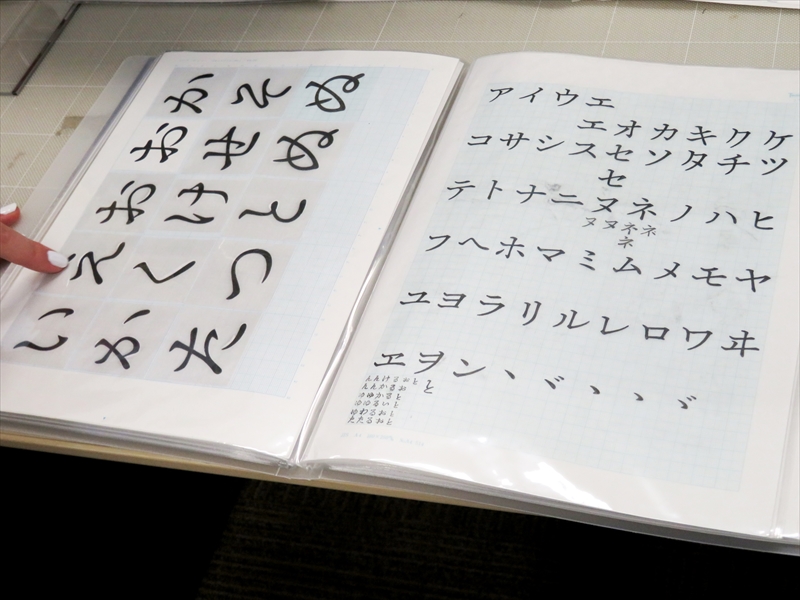 かそぬ
おせぬ
おけと
えくつ
いかた
アイウエ
エオカキクケ
コサシスセソタチツ
セ
テトナニヌネノハヒ
ヌヌネネ
ネ
フヘホマミムメモヤ
ユヨラリルレロワヰ
ヱヲンヽヾヽヽヾ
と